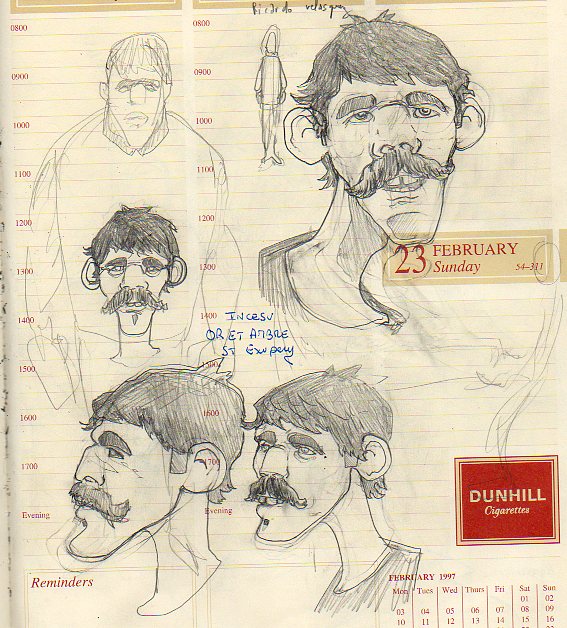 Ricardo velasquez
0800
0900
1000
1100
1200
1300
1400
1500
1600
1700
Evening
Reminders
0800
0900
1000
1100
1200
1300
1400
1500
1600
1700
Evening
23 FEBRUARY
Sunday 54–311
INCESU
OR ET AMBRE
ST Exupery
DUNHILL
Cigarettes
FEBRUARY 1997
Mon Tues Wed Thurs Fri Sat Sun
01 02
03 04 05 06 07 08 09
10 11 12 13 14 15 16